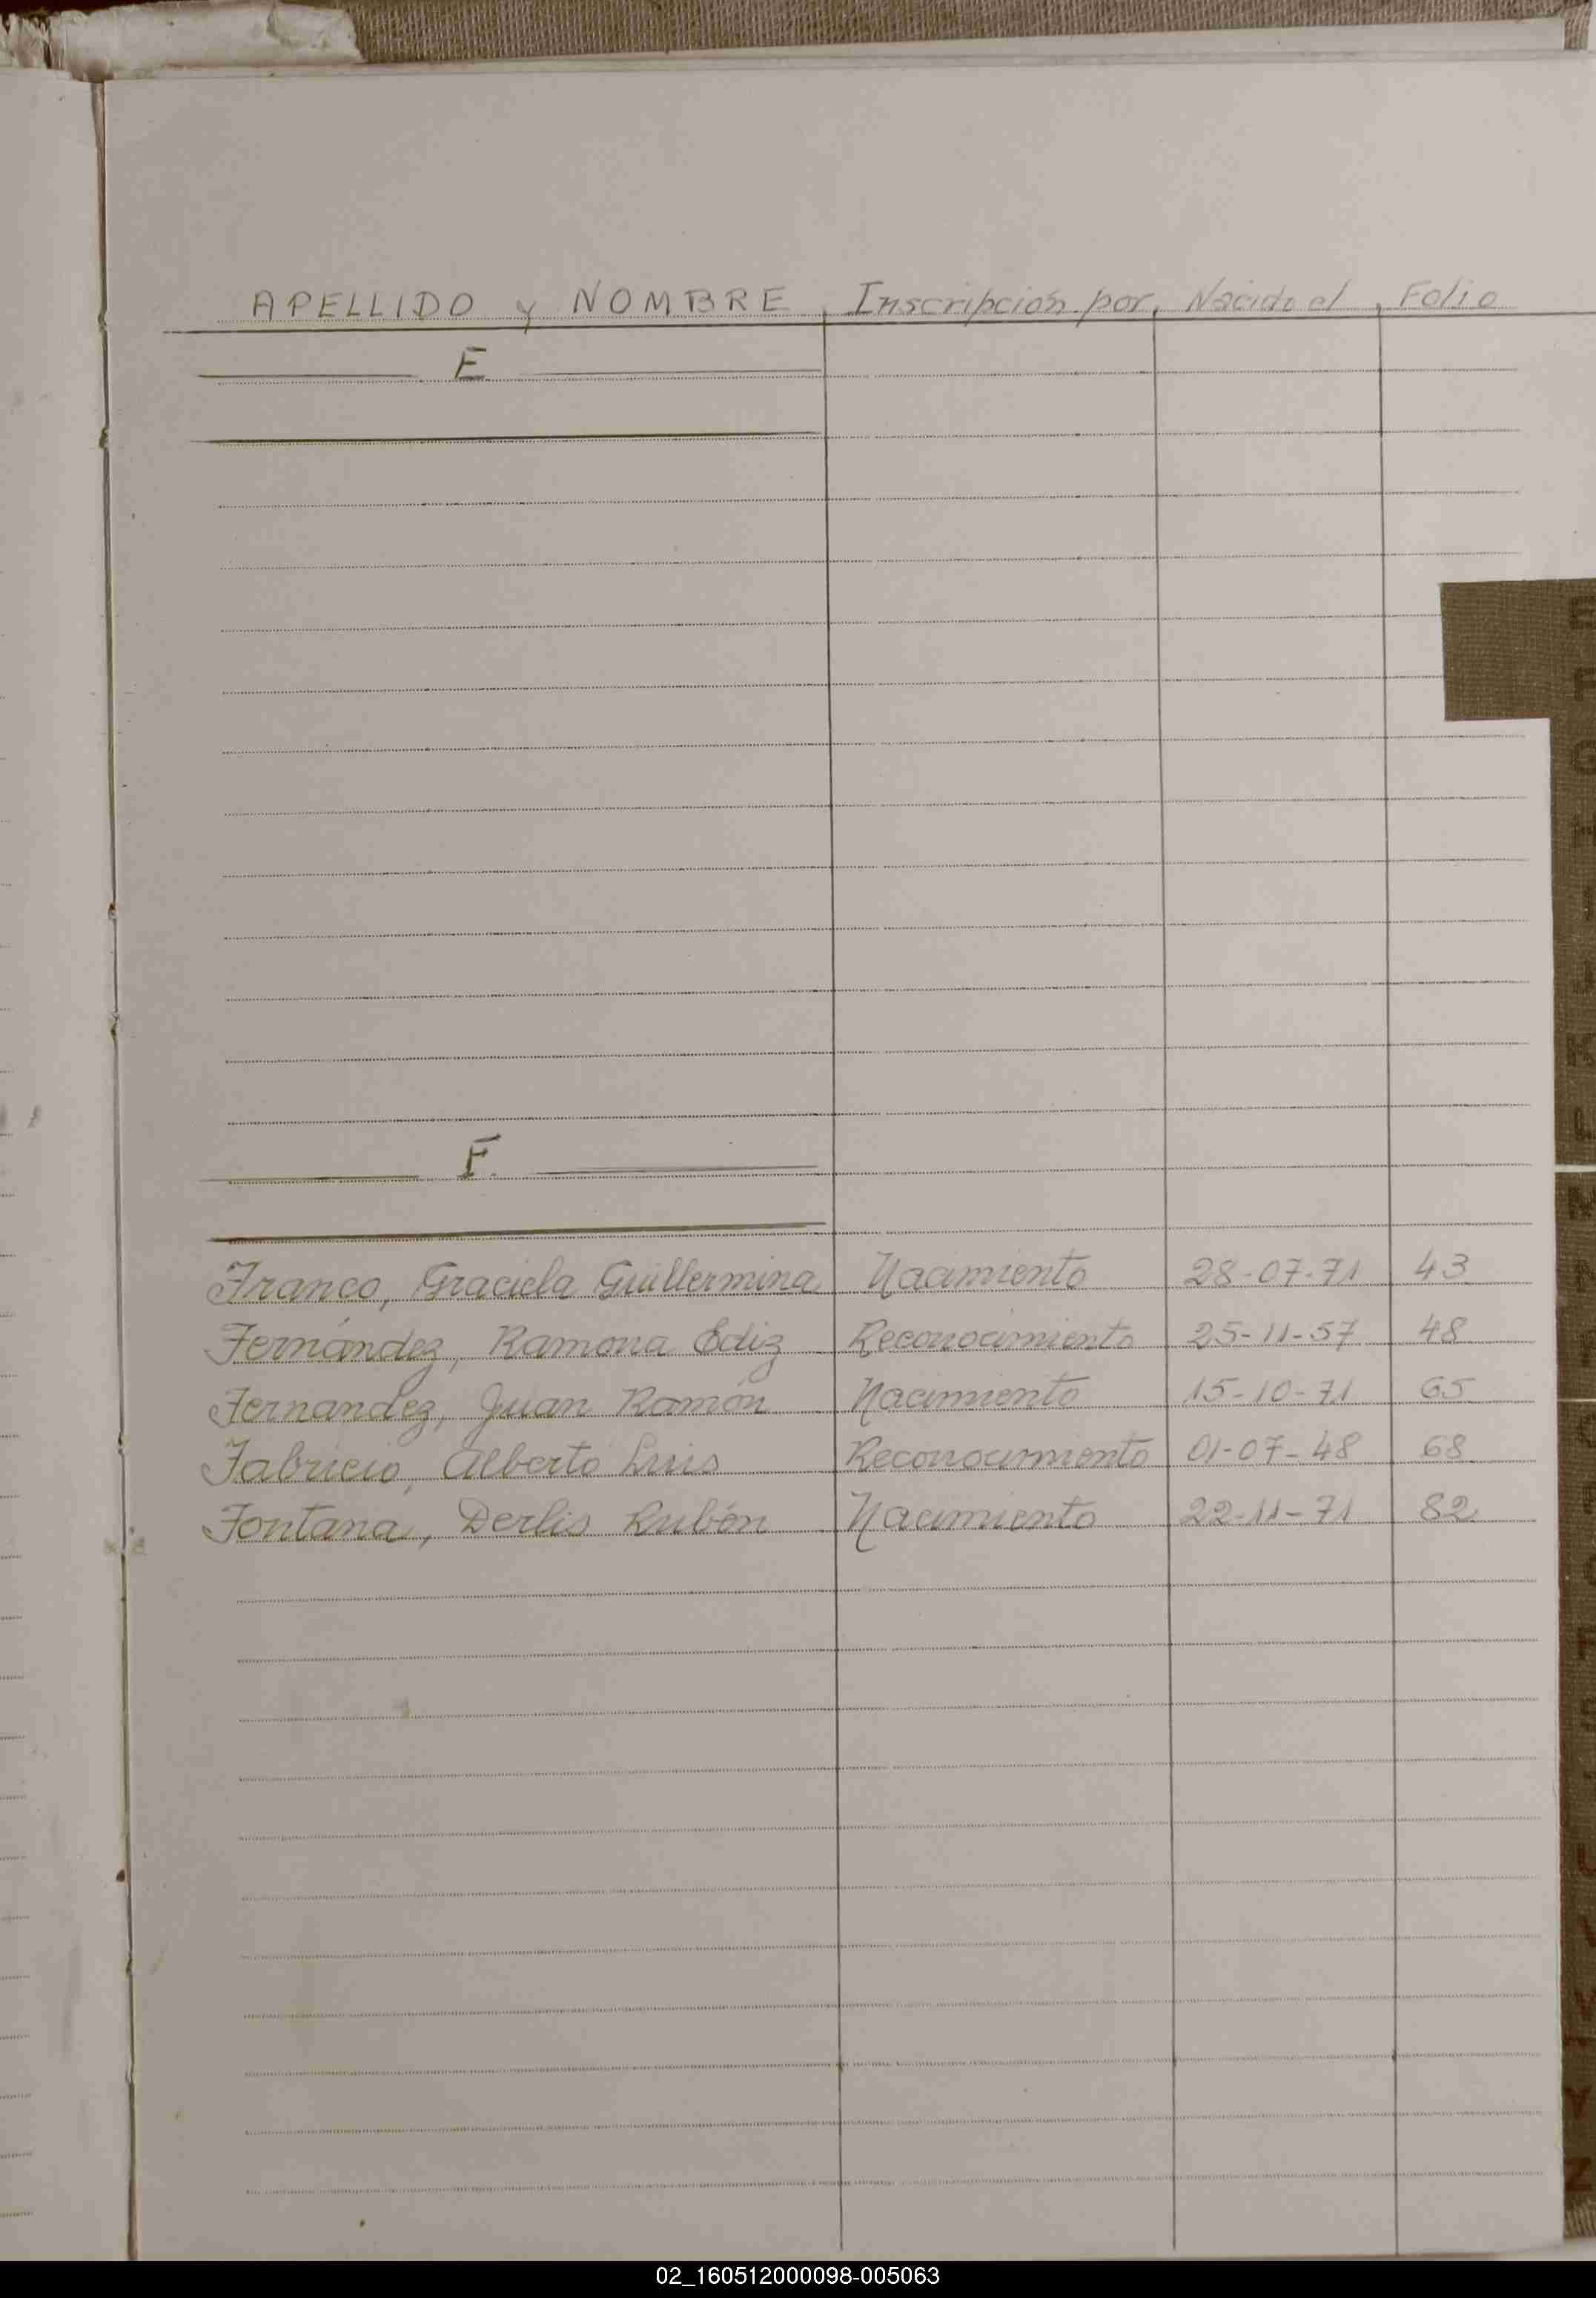 APELLIDO y NOMBRE Inscripción por Nacido el Folio
E
F.
Franco, Graciela Guillermina Nacimiento 28-07-71 43
Fernández, Ramona Ediz Reconocimiento 25-11-57 48
Fernandez, Juan Ramón Nacimiento 15-10-71 65
Fabricio, Alberto Luis Reconocimiento 01-07-48 68
Fontana, Derlis Rubén Nacimiento 22-11-71 82
02_160512000098-005063